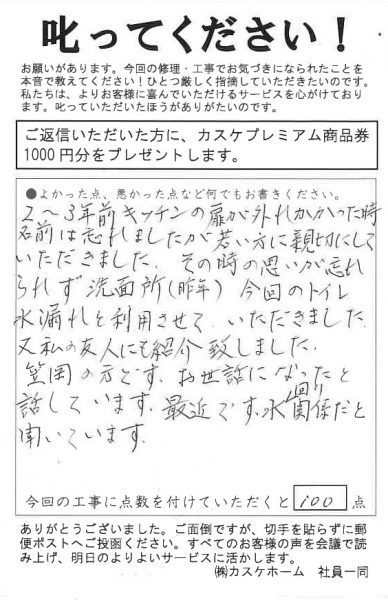 叱ってください！
お願いがあります。今回の修理・工事でお気づきになられたことを
本音で教えてください！ひとつ厳しく指摘していただきたいのです。
私たちは、よりお客様に喜んでいただけるサービスを心がけており
ます。叱っていただいたほうがありがたいのです。
ご返信いただいた方に、カスケプレミアム商品券
1000円分をプレゼントします。
●よかった点、悪かった点など何でもお書きください。
2～3年前キッチンの扉が外れかかった時
名前は忘れましたが若い方に親切にして
いただきました。その時の思いが忘れ
られず洗面所(昨年)今回のトイレ
水漏れと利用させて、いただきました。
又私の友人にも紹介致しました。
笠岡の方です。お世話になったと
話しています。最近です。水回り関係だと
聞いています。
今回の工事に点数を付けていただくと 100 点
ありがとうございました。ご面倒ですが、切手を貼らずに郵
便ポストへご投函ください。すべてのお客様の声を会議で読
み上げ、明日のよりよいサービスに活かします。
㈱カスケホーム 社員一同